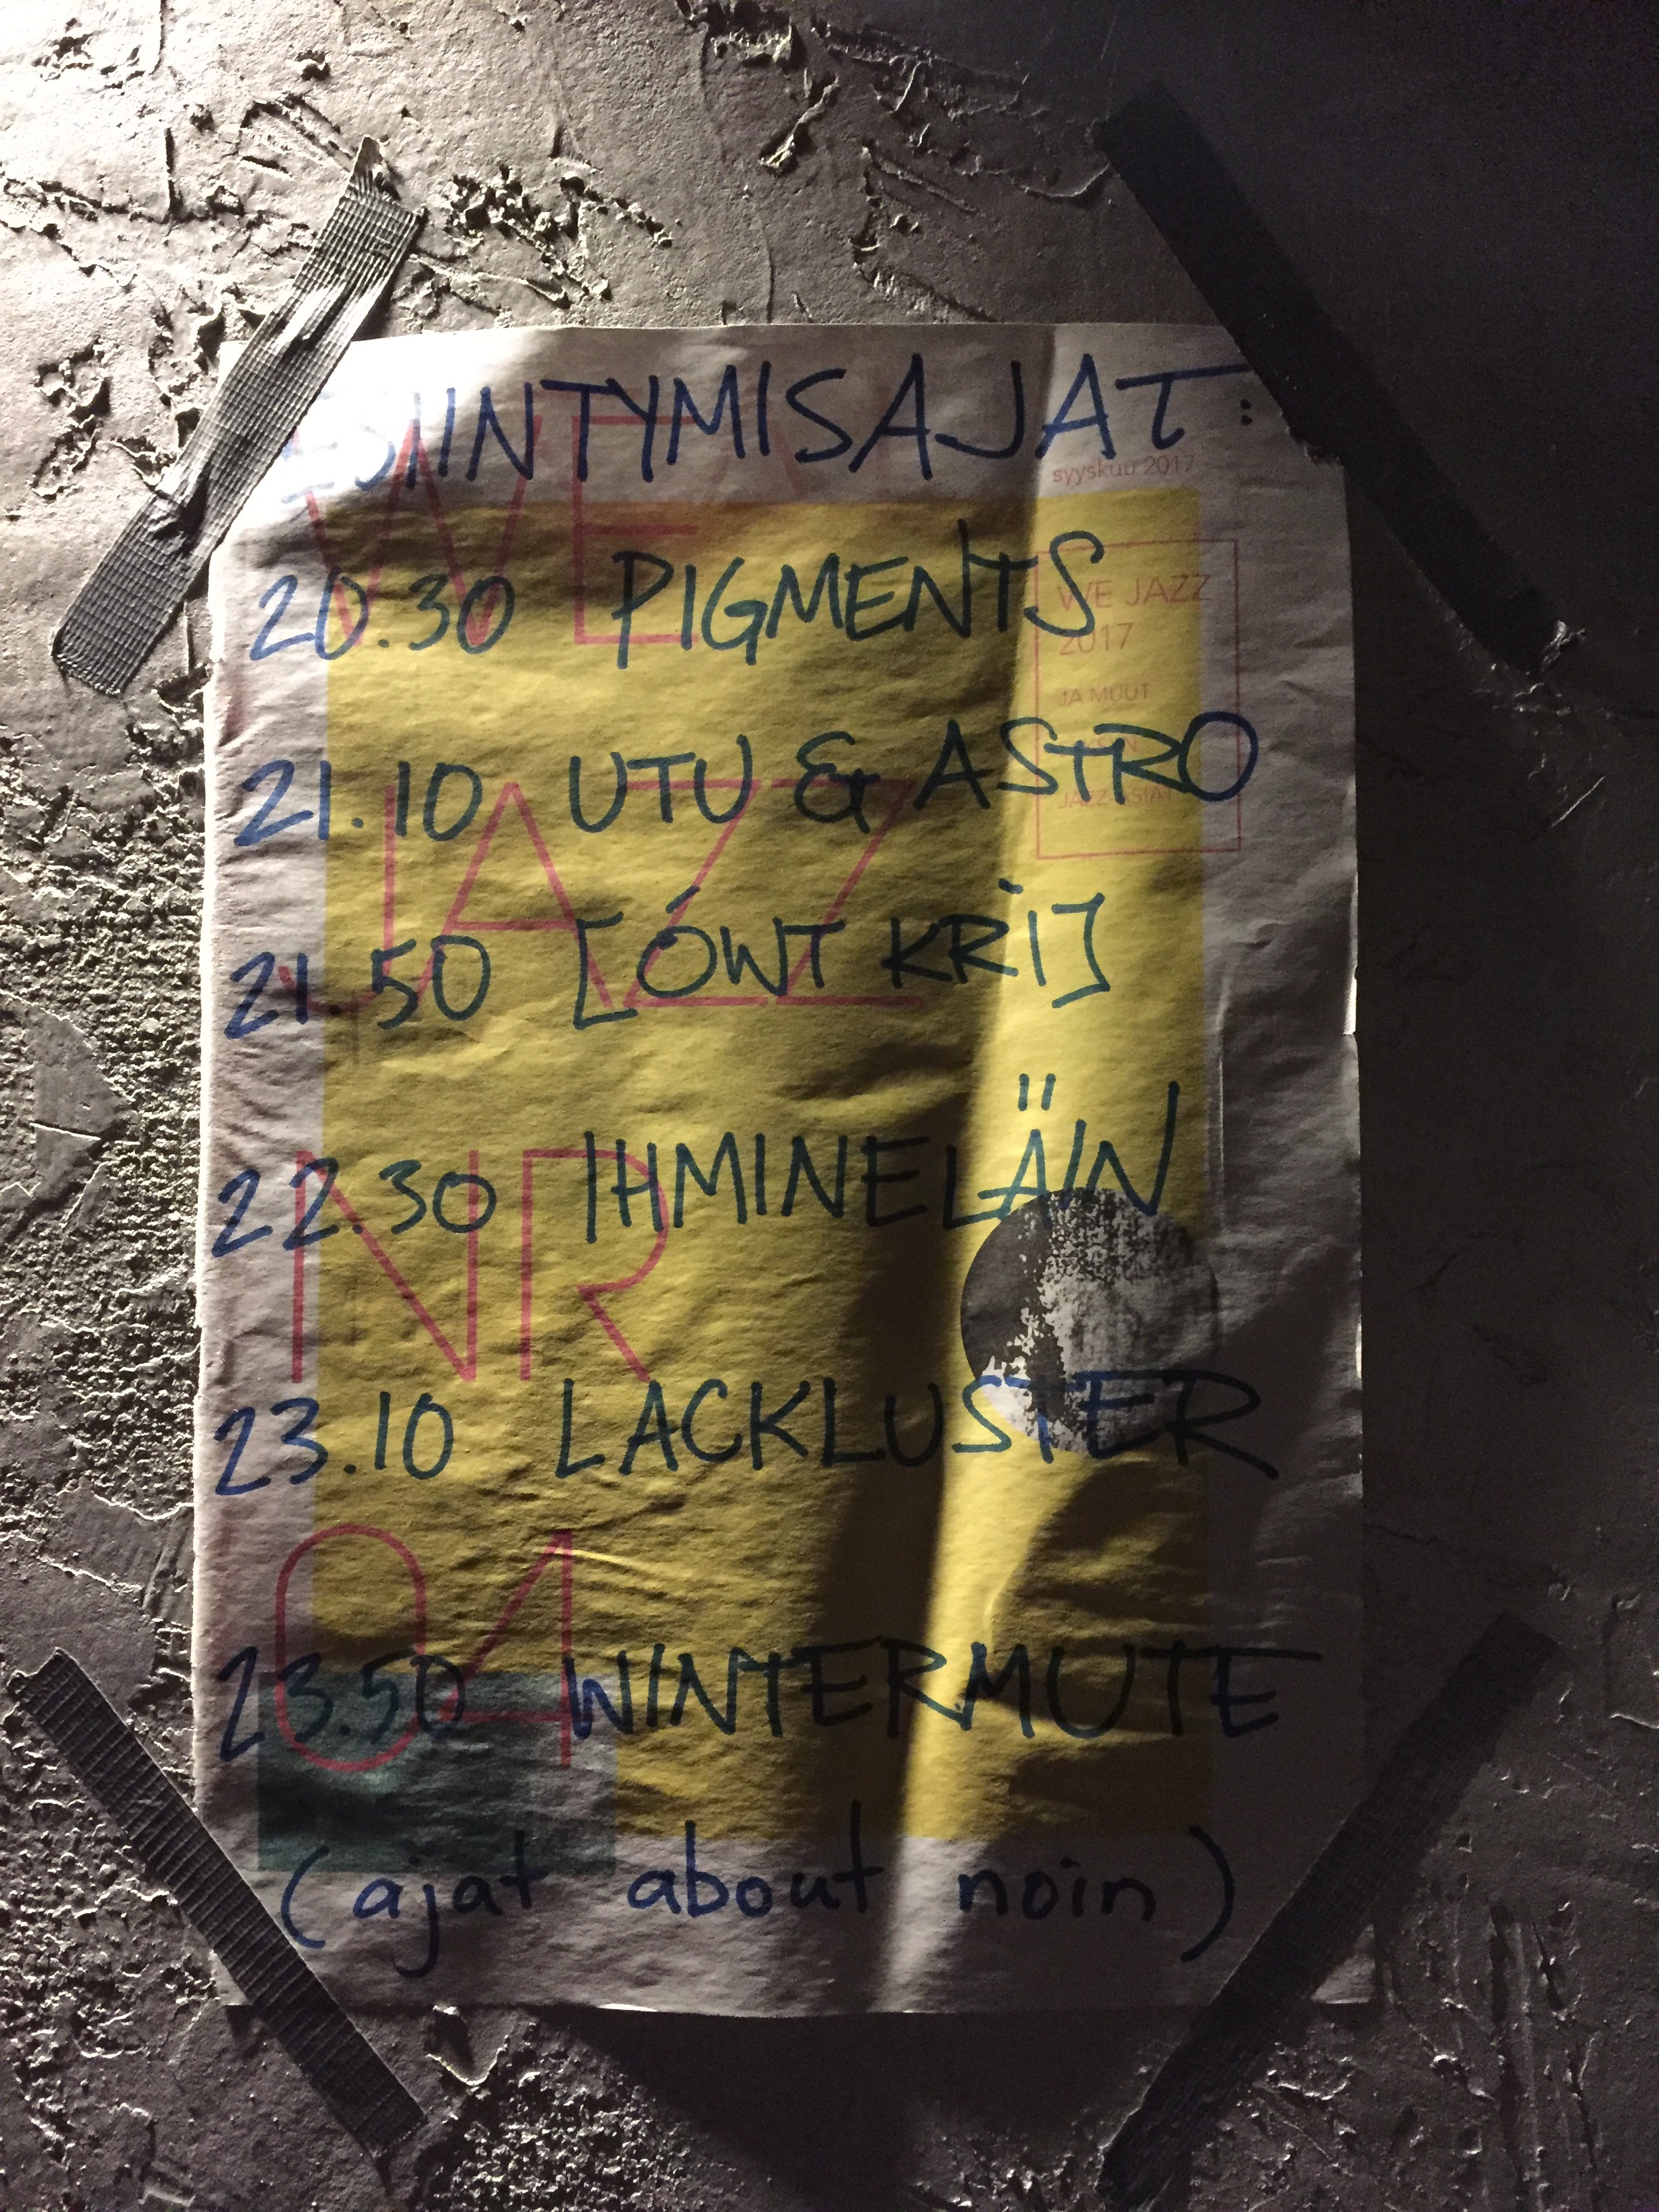 ESIINTYMISAJAT:
20.30 PIGMENTS
21.10 UTU & ASTRO
21.50 [ÓWT KRÌ]
22.30 IHMINELÄIN
23.10 LACKLUSTER
23.50 WINTERMUTE
(ajat about noin)
WE
JAZZ
NR
04
syyskuu 2017
WE JAZZ
2017
JA MUUT